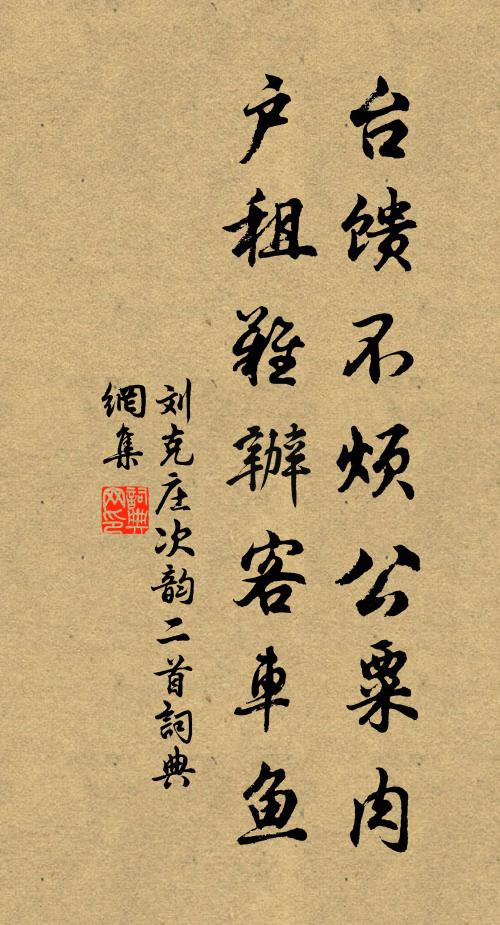 台馈不烦公粟肉
户租难辦客車鱼
刘克庄次韵二首詞典
網集
詞典
网印